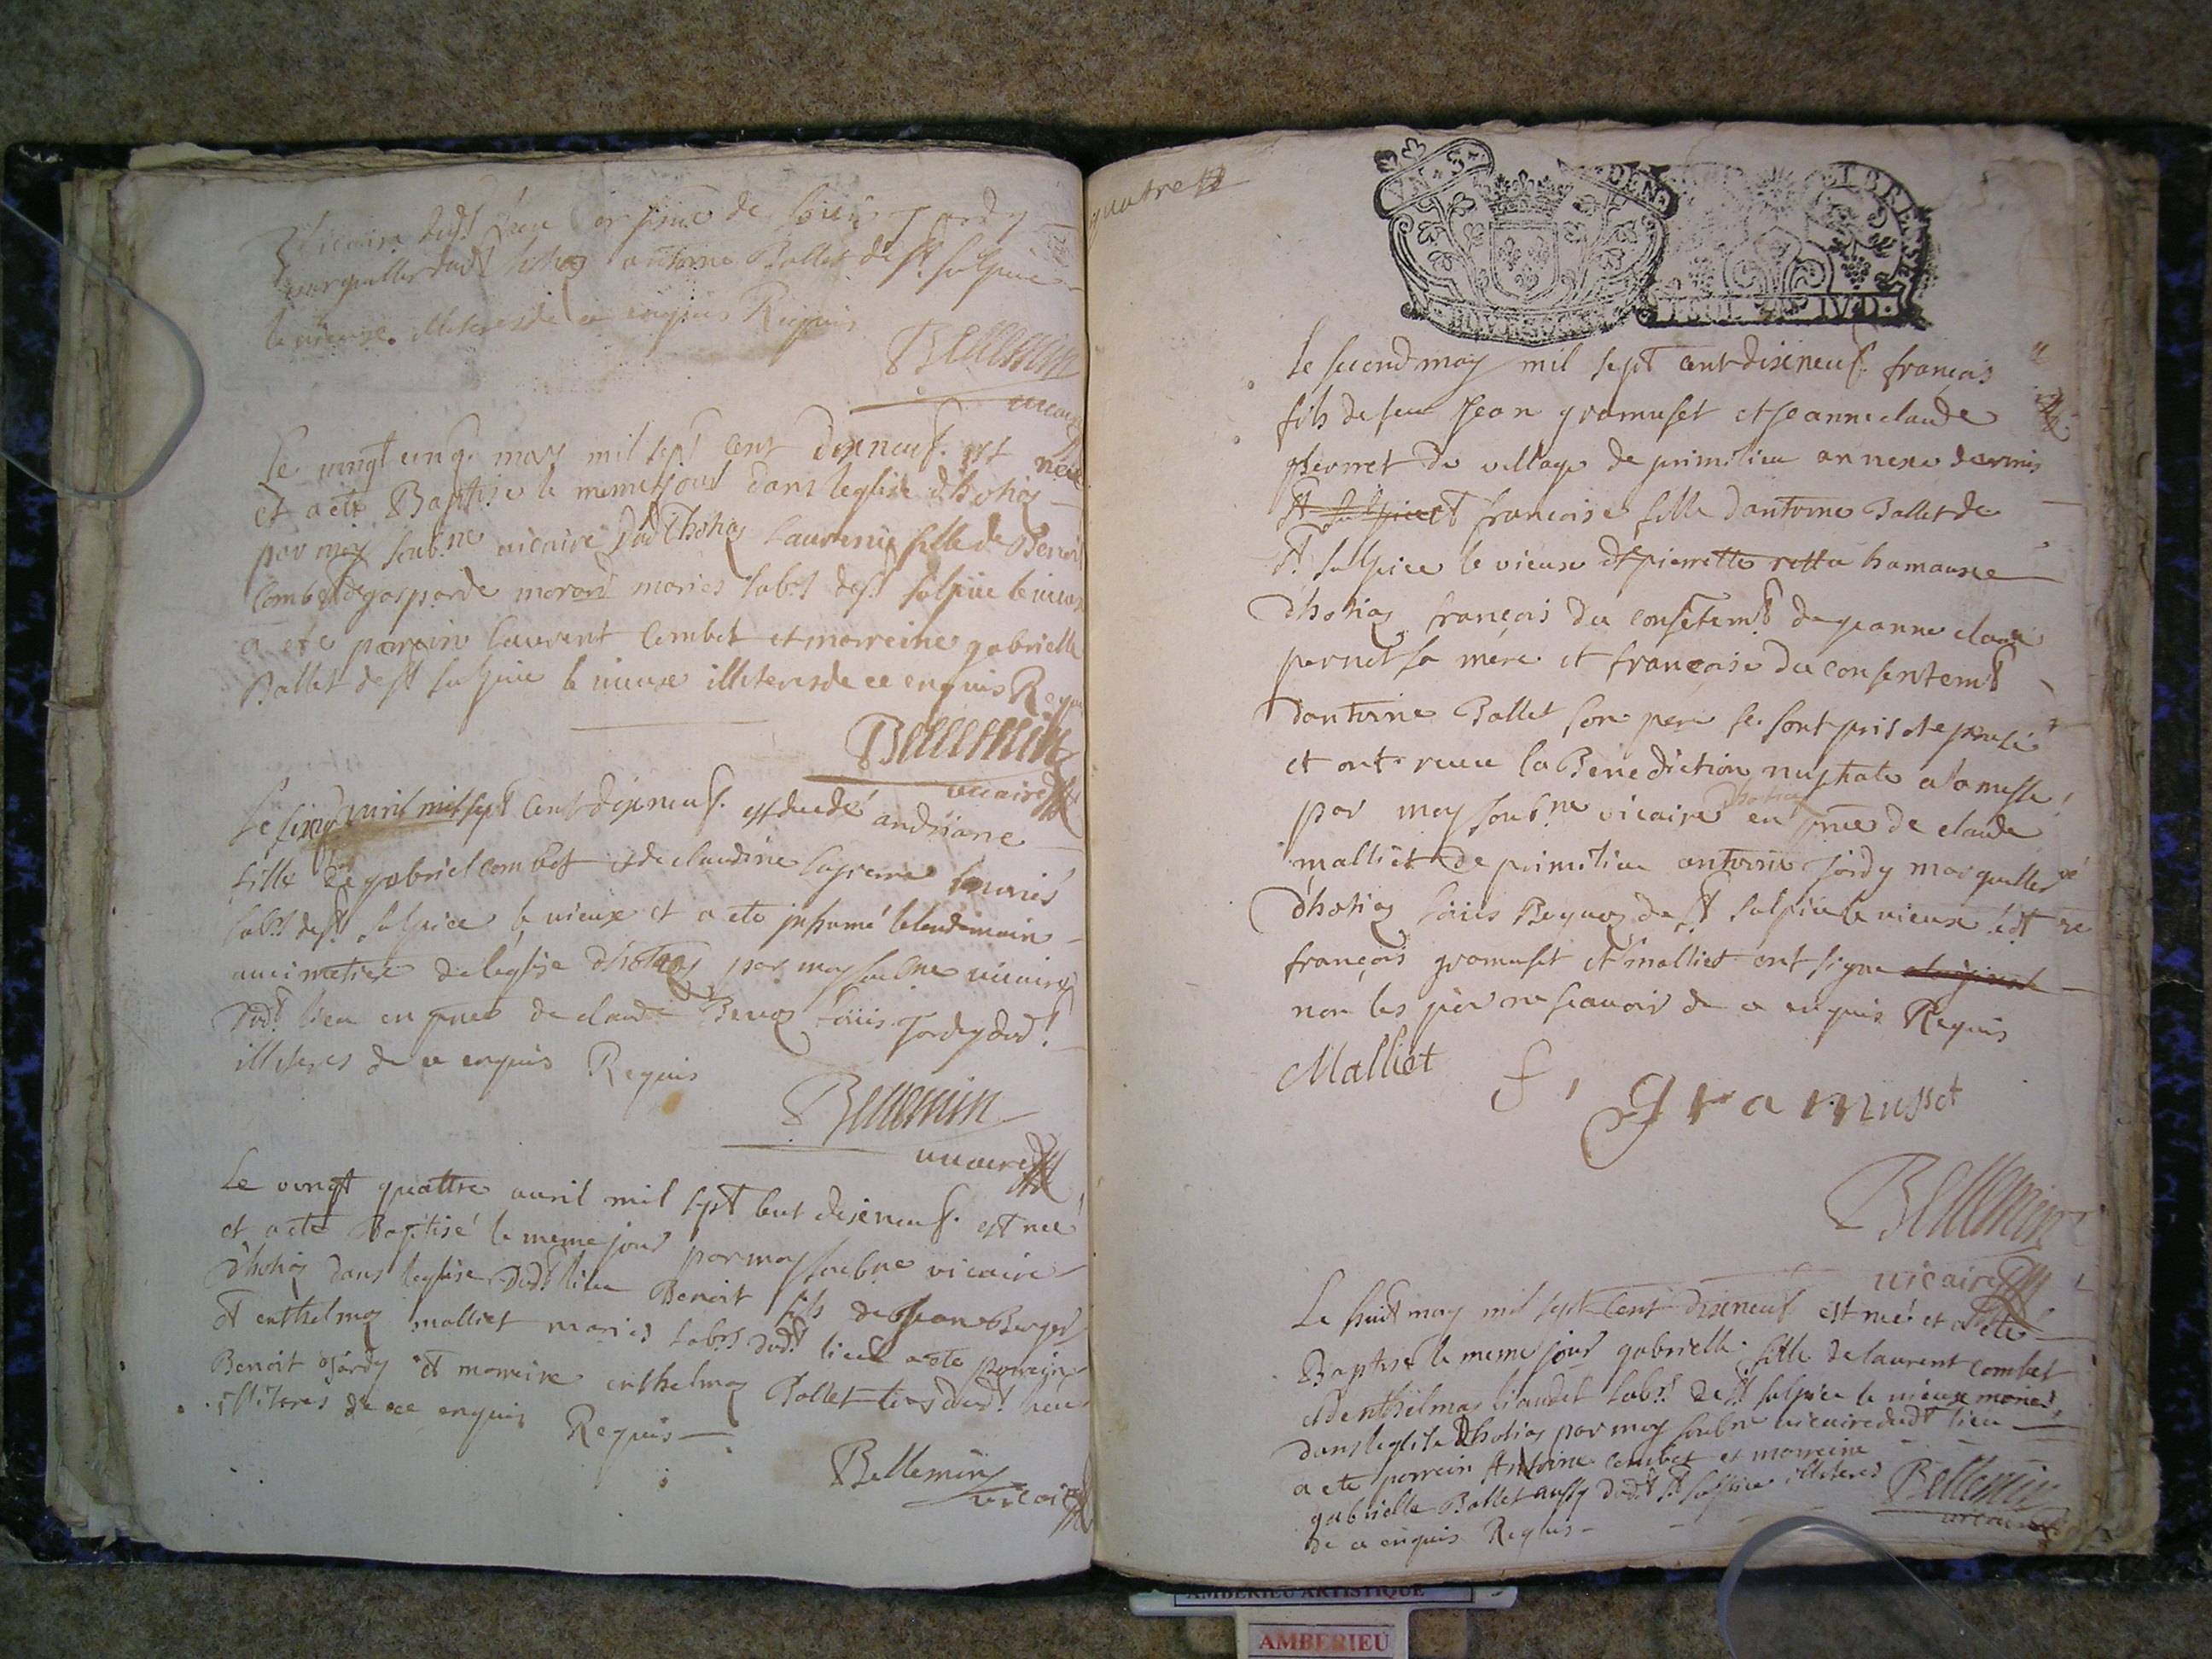 vicaire dudt lieu en pnce de Loüis Jordy
marguiller dudt hotiaz antoine Ballet de st sulpice
le vieux. illiteres de ce enquis Requis
Bellemin
vicaire
Le vingt cinq may mil sept cent dixneuf. est née
et a eté Baptisé le meme jour dans leglise dhotiaz
par moy soubne vicaire dudt hotiaz Laurence fille de Benoit
Combet et de gasparde morand mariés labrs de st sulpice le vieux
a eté parrein Laurent Combet et marreine gabrielle
Ballet de st sulpice le vieux illiteres de ce enquis Requis
Bellemin
vicaire
Le avril mil sept cent dixneuf. est decedé andriane
fille de gabriel combet et de claudine mariés
labrs de st sulpice le vieux et a eté inhumé le lendemain
au cimetiere de leglise dhotiaz par moy soubne vicaire
dudt lieu en pnce de claude Loüis Jordy dudt
illiteres de ce enquis Requis
Bellemin
vicaire
Le vingt quattre avril mil sept cent dixneuf. est né
et a eté Baptisé le meme jour par moy soubne vicaire
dhotiaz dans leglise dudt lieu Benoit fils de Jean Berger
et enthelmaz malliet mariés labrs dudt lieu a eté parrein
Benoit Jordy et marreine enthelmaz Ballet dudt lieu
illiteres de ce enquis Requis
Bellemin
vicaire
quatre
DEN
IVD.
Le second may mil sept cent dixneuf. françois
fils de feu Jean gramuset et Jeanne claude
pernet du village de primilieu annexe darmis
st sulpice et francoise fille dantoine Ballet de
st sulpice le vieux et pierrette
dhotiaz françois du consetemt de jeanne claude
pernet sa mere et francoise du consentemt
dantoine Ballet son pere se sont pris et epousé
et ont receu la Benediction nuptiale a la messe
par moy soubne vicaire dhotiaz en pnce de claude
malliet de primilieu antoine Jordy marguiller
dhotiaz Loüis Beguoz de st sulpice le vieux ledt
françois gramuset et malliet ont signé
non les pour ne scavoir de ce enquis Requis
Malliet
f, Gramusset
Bellemin
vicaire
Le huit may mil sept cent dixneuf est née et a eté
Baptisé le meme jour gabrielle fille de laurent combet
et denthelmaz labrs de st sulpice le vieux mariés
dans leglise dhotiaz par moy soubne vicaire dudt lieu
a eté parrein Antoine combet et marreine
gabrielle Ballet aussy dudt st sulpice illiteres
de ce enquis Requis
Bellemin
vicaire
AMBERIEU ARTISTIQUE
AMBERIEU